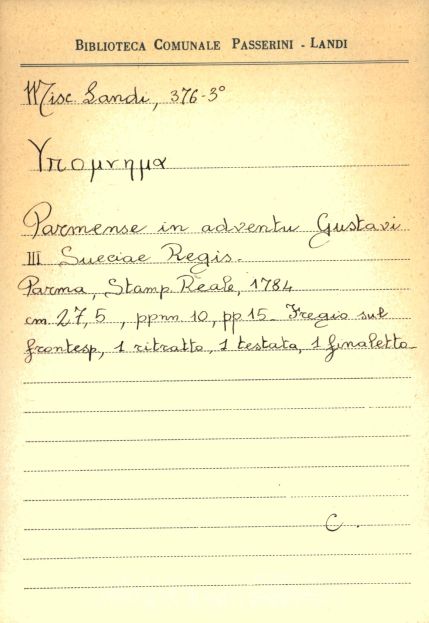 BIBLIOTECA COMUNALE PASSERINI - LANDI
Misc. Landi, 376-3°
Υπομνημα
Parmense in adventu Gustavi
III Sueciae Regis.
Parma, Stamp. Reale, 1784
cm 27,5, ppnn 10, pp 15. Fregio sul
frontesp, 1 ritratto, 1 testata, 1 finaletto.
C.